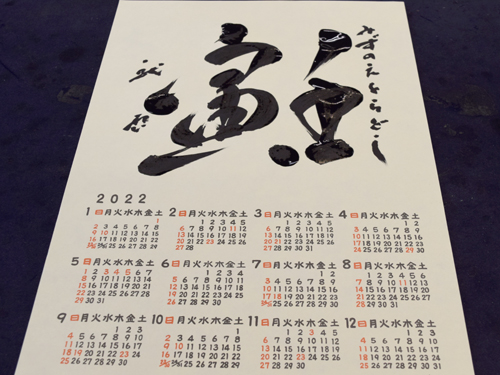 みずのえとらどし
2022
1 日月火水木金土
1
2 3 4 5 6 7 8
9 10 11 12 13 14 15
16 17 18 19 20 21 22
23/30 24/31 25 26 27 28 29
2 日月火水木金土
1 2 3 4 5
6 7 8 9 10 11 12
13 14 15 16 17 18 19
20 21 22 23 24 25 26
27 28
3 日月火水木金土
1 2 3 4 5
6 7 8 9 10 11 12
13 14 15 16 17 18 19
20 21 22 23 24 25 26
27 28 29 30 31
4 日月火水木金土
1 2
3 4 5 6 7 8 9
10 11 12 13 14 15 16
17 18 19 20 21 22 23
24 25 26 27 28 29 30
5 日月火水木金土
1 2 3 4 5 6 7
8 9 10 11 12 13 14
15 16 17 18 19 20 21
22 23 24 25 26 27 28
29 30 31
6 日月火水木金土
1 2 3 4
5 6 7 8 9 10 11
12 13 14 15 16 17 18
19 20 21 22 23 24 25
26 27 28 29 30
7 日月火水木金土
1 2
3 4 5 6 7 8 9
10 11 12 13 14 15 16
17 18 19 20 21 22 23
24/31 25 26 27 28 29 30
8 日月火水木金土
1 2 3 4 5 6
7 8 9 10 11 12 13
14 15 16 17 18 19 20
21 22 23 24 25 26 27
28 29 30 31
9 日月火水木金土
1 2 3
4 5 6 7 8 9 10
11 12 13 14 15 16 17
18 19 20 21 22 23 24
25 26 27 28 29 30
10 日月火水木金土
1
2 3 4 5 6 7 8
9 10 11 12 13 14 15
16 17 18 19 20 21 22
11 日月火水木金土
1 2 3 4 5
6 7 8 9 10 11 12
13 14 15 16 17 18 19
20 21 22 23 24 25 26
12 日月火水木金土
1 2 3
4 5 6 7 8 9 10
11 12 13 14 15 16 17
18 19 20 21 22 23 24